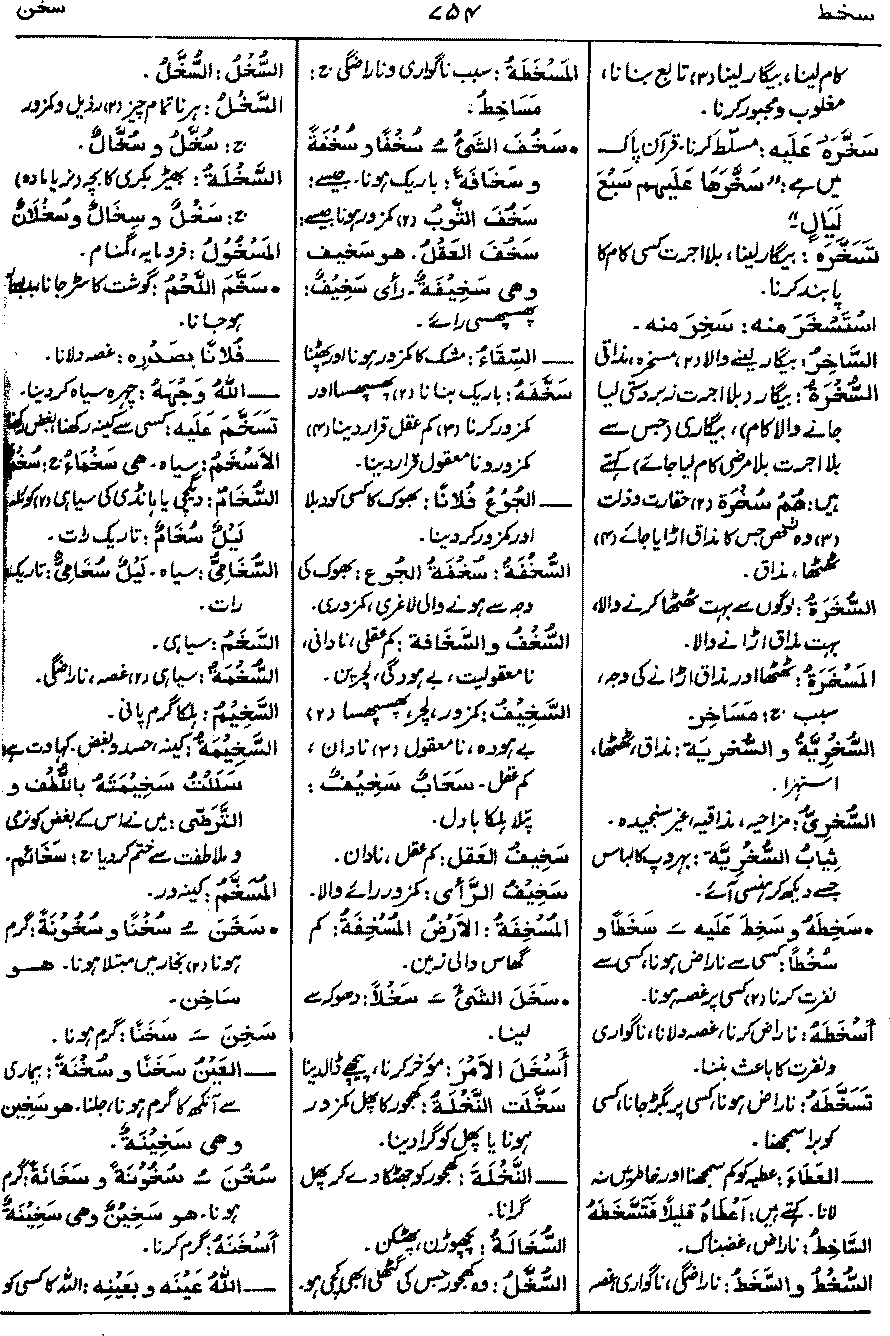 سخط
۷۵۴
سخن
کام لینا، بیگار لینا (۳) تابع بنانا،
مغلوب و مجبور کرنا۔
سَخَّرَهُ عَلَيه: مسلّط کرنا۔ قرآن پاک
میں ہے: "سَخَّرَهَا عَلَيهِم سَبْعَ
لَيَالٍ"
تَسَخَّرَه: بیگار لینا، بلا اجرت کسی کام کا
پابند کرنا۔
اسْتَسْخَرَ منه: سَخِرَ منه۔
السَّاخِرُ: بیگار لینے والا (۲) مسخرہ، مذاقی
السُّخْرَةُ: بیگار (بلا اجرت زبردستی لیا
جانے والا کام)، بیگاری (جس سے
بلا اجرت بلا مرضی کام لیا جائے) کہتے
ہیں: هُمْ سُخْرَة (۲) حقارت وذلت
(۳) وہ شخص جس کا مذاق اڑایا جائے (۴)
ٹھٹھا، مذاق۔
السُّخَرَةُ: لوگوں سے بہت ٹھٹھا کرنے والا،
بہت مذاق اڑانے والا۔
المَسْخَرَةُ: ٹھٹھا اور مذاق اڑانے کی وجہ،
سبب ج: مَسَاخِر
السُّخْرِيَّةُ و السُّخرِيَة: مذاق، ٹھٹھا،
استہزا۔
السُّخْرِيُّ: مزاحیہ، مذاقیہ، غیر سنجیدہ۔
ثِيابُ السُّخْرِيَّة: بہروپ کا لباس
جسے دیکھ کر ہنسی آئے۔
• سَخِطَهُ و سَخِطَ عَلَيه ـَ سَخَطًا و
سُخْطًا: کسی سے ناراض ہونا، کسی سے
نفرت کرنا (۲) کسی پر غصہ ہونا۔
أَسْخَطَهُ: ناراض کرنا، غصہ دلانا، ناگواری
و نفرت کا باعث بننا۔
تَسَخَّطَهُ: ناراض ہونا، کسی پر بگڑ جانا، کسی
کو برا سمجھنا۔
ــــ العَطَاءَ: عطیہ کو کم سمجھنا اور خاطر میں نہ
لانا۔ کہتے ہیں: أَعْطَاهُ قَلِيلًا فَتَسَخَّطَهُ
السَّاخِطُ: ناراض، غضبناک۔
السُّخْطُ و السَّخَطُ: ناراضگی، ناگواری، غصہ
المَسْخَطَةُ: سبب ناگواری و ناراضگی ج:
مَسَاخِطُ۔
• سَخُفَ الشَّئُ ـُ سُخْفًا و سُخْفَةً
و سَخَافَةً: باریک ہونا۔ جیسے:
سَخُفَ الثَّوبُ (۲) کمزور ہونا جیسے:
سَخُفَ العَقْلُ۔ هو سَخِيف
وهي سَخِيفَةٌ۔ رأى سَخِيفٌ:
پھسپھسی رائے۔
ــــ السِّقَاءُ: مشک کا کمزور ہونا اور پھٹنا
سَخَّفَهُ: باریک بنانا (۲) پھسپھسا اور
کمزور کرنا (۳) کم عقل قرار دینا (۴)
کمزور و نامعقول قرار دینا۔
ــــ الجُوعُ فُلَانًا: بھوک کا کسی کو دبلا
اور کمزور کر دینا۔
السُّخْفَةُ: سُخْفَةُ الجُوع: بھوک کی
وجہ سے ہونے والی لاغری، کمزوری۔
السُّخْفُ والسَّخَافة: کم عقلی، نادانی،
نامعقولیت، بے ہودگی، لچرپن۔
السَّخِيفُ: کمزور، لچر، پھسپھسا (۲)
بے ہودہ، نامعقول (۳) نادان،
کم عقل۔ سَحَابٌ سَخِيفٌ:
پتلا ہلکا بادل۔
سَخِيفُ العَقل: کم عقل، نادان۔
سَخِيفُ الرَّأى: کمزور رائے والا۔
المُسْخِفَةُ: الأرْضُ المُسْخِفَةُ: کم
گھاس والی زمین۔
• سَخَلَ الشَّئَ ـَ سَخْلًا: دھوکہ سے
لینا۔
أَسْخَلَ الأَمْرَ: مؤخر کرنا، پیچھے ڈالدینا
سَخَّلَت النَّخْلَةُ: کھجور کا پھل کمزور
ہونا یا پھل کو گرا دینا۔
ــــ النَّخْلَةَ: کھجور کو جھٹکا دے کر پھل
گرانا۔
السُّخَالَةُ: پچھوڑن، پھٹکن۔
السُّخَّلُ: وہ کھجور جس کی گٹھلی ابھی کچی ہو۔
السُّخَّلُ: السُّخَّلُ۔
السَّخْلُ: ہر نا تمام چیز (۲) رذیل و کمزور
ج: سُخَّلٌ و سُخَّالٌ۔
السَّخْلَةُ: بھیڑ بکری کا بچہ (نر یا مادہ)
ج: سَخْلٌ و سِخَالٌ و سُخْلَانٌ
المَسْخُولُ: فرومایہ، گمنام۔
• سَخَّمَ اللَّحْمُ: گوشت کا سڑ جانا
ہو جانا۔
ــــ فُلَانًا بِصَدْرِه: غصہ دلانا۔
ــــ اللهُ وَجْهَهُ: چہرہ سیاہ کر دینا۔
تَسَخَّمَ عَلَيه: کسی سے کینہ رکھنا، بغض
الأَسْخَمُ: سیاہ۔ هي سَخْمَاءُ ج: سُخْمٌ
السُّخَامُ: دیگچی یا ہانڈی کی سیاہی (۲) کوئلہ
لَيْلٌ سُخَامٌ: تاریک رات۔
السُّخَامِيُّ: سیاہ۔ لَيْلٌ سُخَامِيٌّ: تاریک
رات۔
السَّخَمُ: سیاہی۔
السُّخْمَةُ: سیاہی (۲) غصہ، ناراضگی۔
السَّخِيْمُ: ہلکا گرم پانی۔
السَّخِيْمَةُ: کینہ، حسد و بغض۔ کہاوت ہے
سَلَلْتُ سَخِيْمَتَهُ بِاللُّطْفِ و
التَّرَضِّى: میں نے اس کے بغض کو نرمی
و ملاطفت سے ختم کر دیا ج: سَخَائم۔
المُسَخَّمُ: کینہ ور۔
• سَخَنَ ـُ سُخْنًا و سُخُوْنَةً: گرم
ہونا (۲) بخار میں مبتلا ہونا۔ هــو
سَاخِن۔
سَخِنَ ـَ سَخَنًا: گرم ہونا۔
ــــ العَيْنُ سَخَنًا و سُخْنَةً: بیماری
سے آنکھ کا گرم ہونا، جلنا۔ هو سَخِين
وهى سَخِيْنَةٌ۔
سَخُنَ ـُ سُخُوْنَةً و سَخَانَةً: گرم
ہونا۔ هو سَخِيْنٌ وهى سَخِيْنَةٌ
أَسْخَنَهُ: گرم کرنا۔
ــــ اللهُ عَيْنَه و بِعَيْنِه: اللہ کا کسی کو